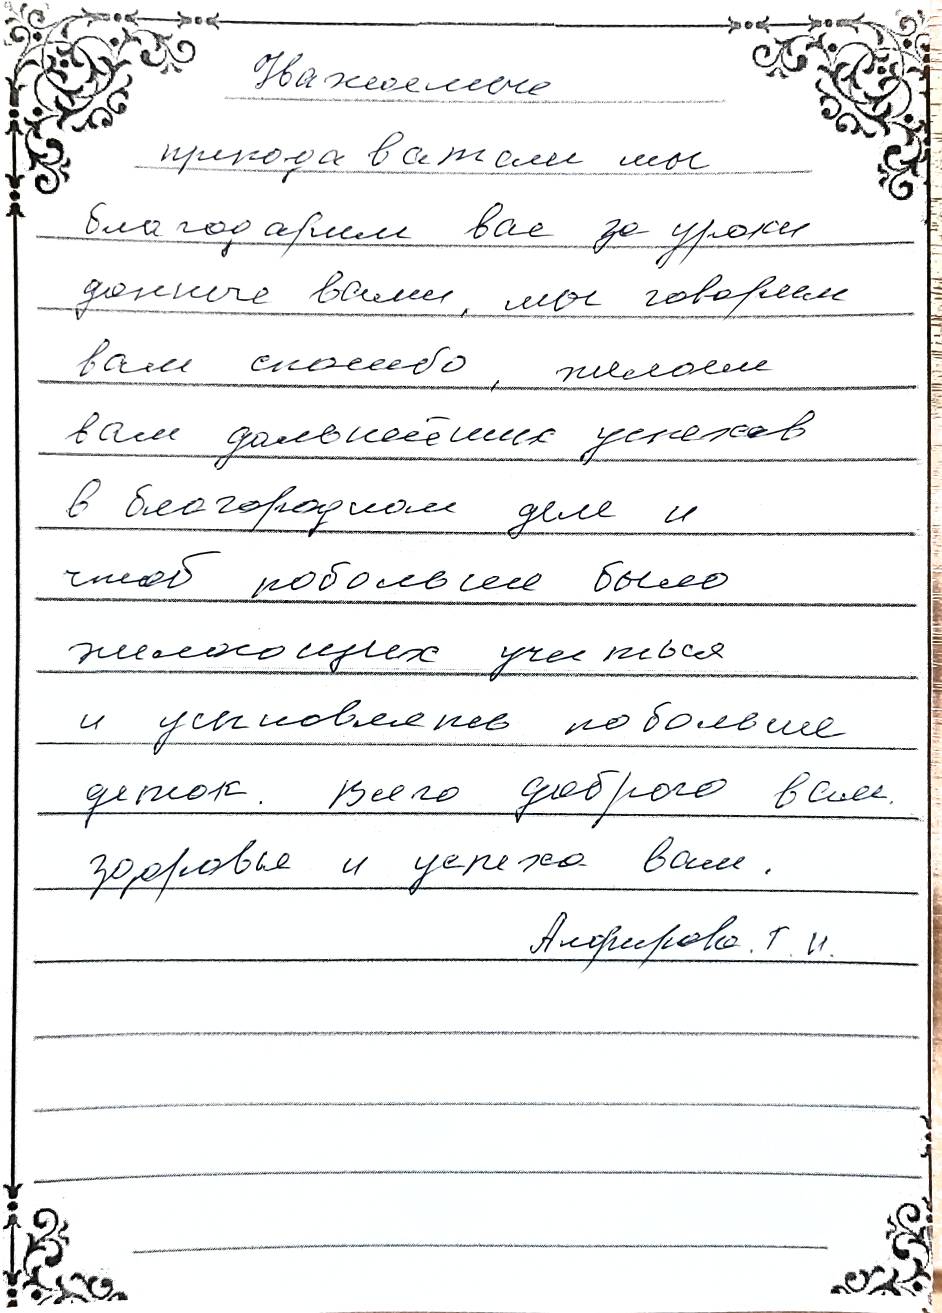 Уважаемые
прподаватели мы
благодарим вас за уроки
данные вами, мы говорим
вам спасибо, желаем
вам дальнейших успехов
в благородном деле и
чтоб побольше было
желающих учиться
и усыновлять побольше
деток. Всего доброго вам.
здоровье и успеха вам.
Г. И.